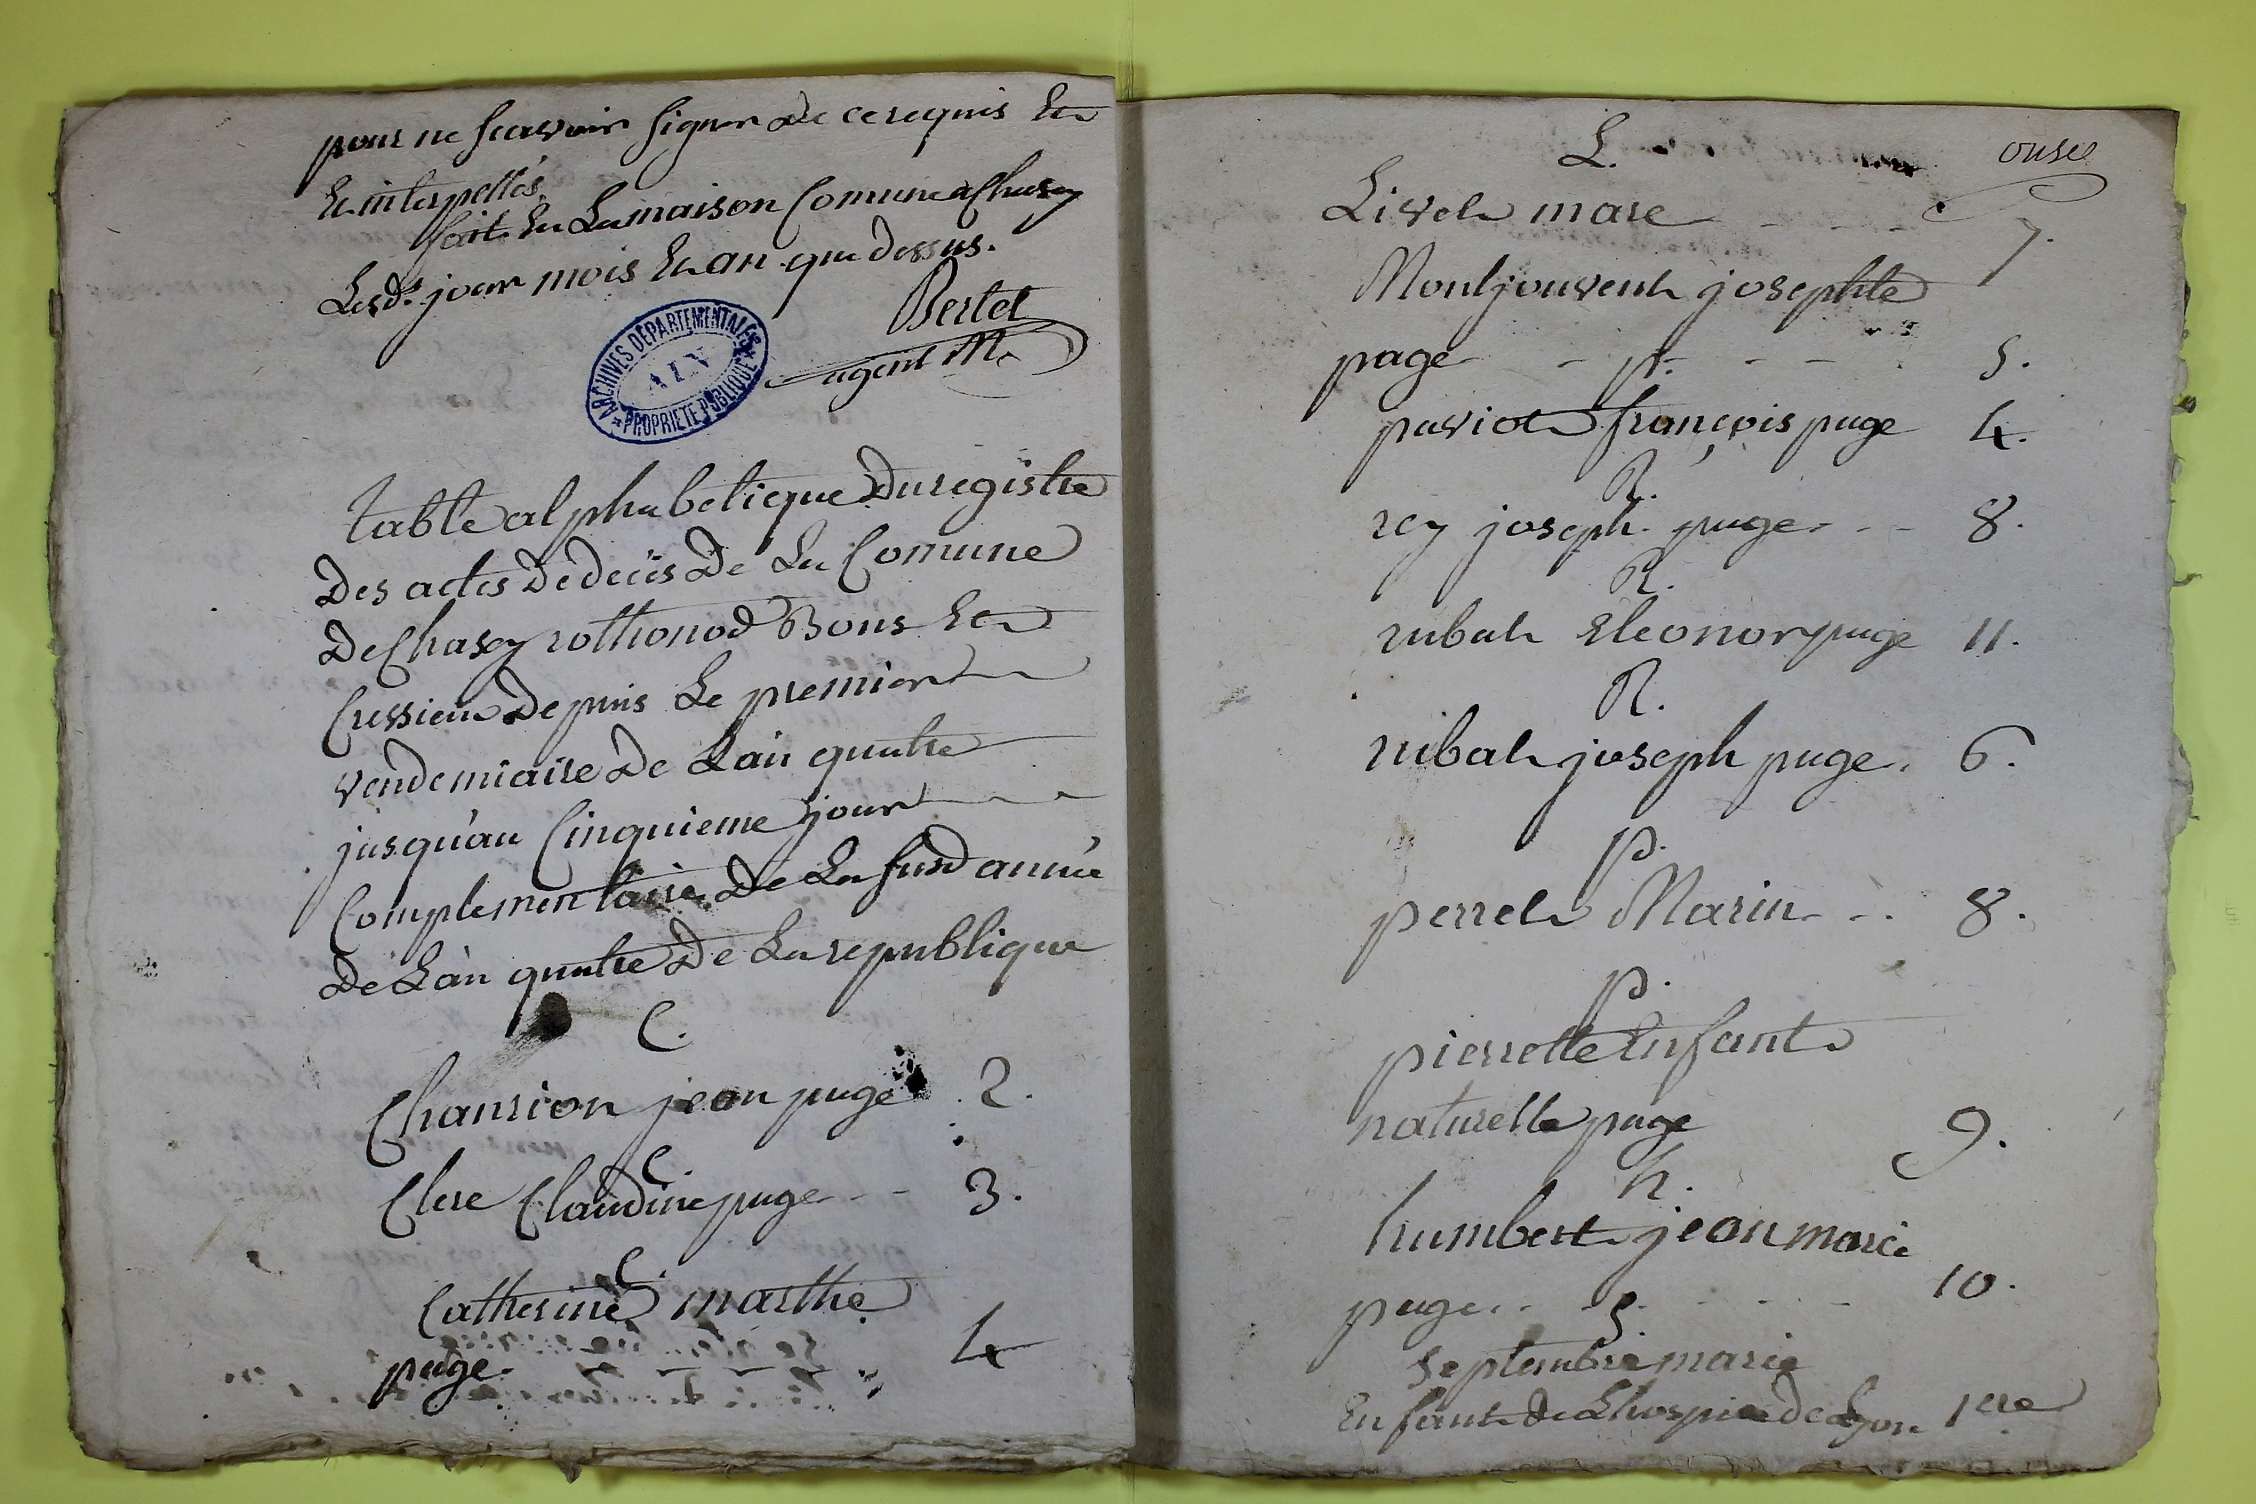 pour ne scavoir signer de ce requis Et
Et interpellés
fait En La maison Comune a Chasey
Lesd.s jour mois Et an que dessus.
Bertet
agent M.
ARCHIVES DÉPARTEMENTALES
AIN
PROPRIÉTÉ PUBLIQUE
table alphabetique Du registre
Des actes De deces De La Comune
De Chasey rothonod Bons Et
Cressieu Depuis Le premier
vendemiaire De L'an quatre
jusqu'au Cinquieme jour
Complementaire De La susd année
De L'an quatre De La republique
C.
Chanrion jean page 2.
C
Clere Claudine page 3.
C.
Catherine marthe
page 4
onse
L.
Livet marc 7.
Montjouvent josephte
page 5.
p.
paviot françois page 4.
R.
rey joseph page 8.
R.
rubat Eleonor page 11.
R.
rubat joseph page 6.
p.
perret Marin 8.
p.
pierrette Enfant
naturelle page 9.
h.
humbert jean marie
page 10.
S.
septembre marie
Enfant de L'hospice de Lyon 1ere